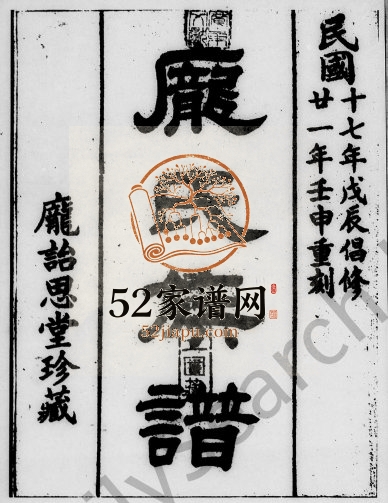 民國十七年戊辰倡修
廿一年壬申重刻
龐
譜
龐詒思堂珍藏
52家谱网
52jiapu.com
ilysearch